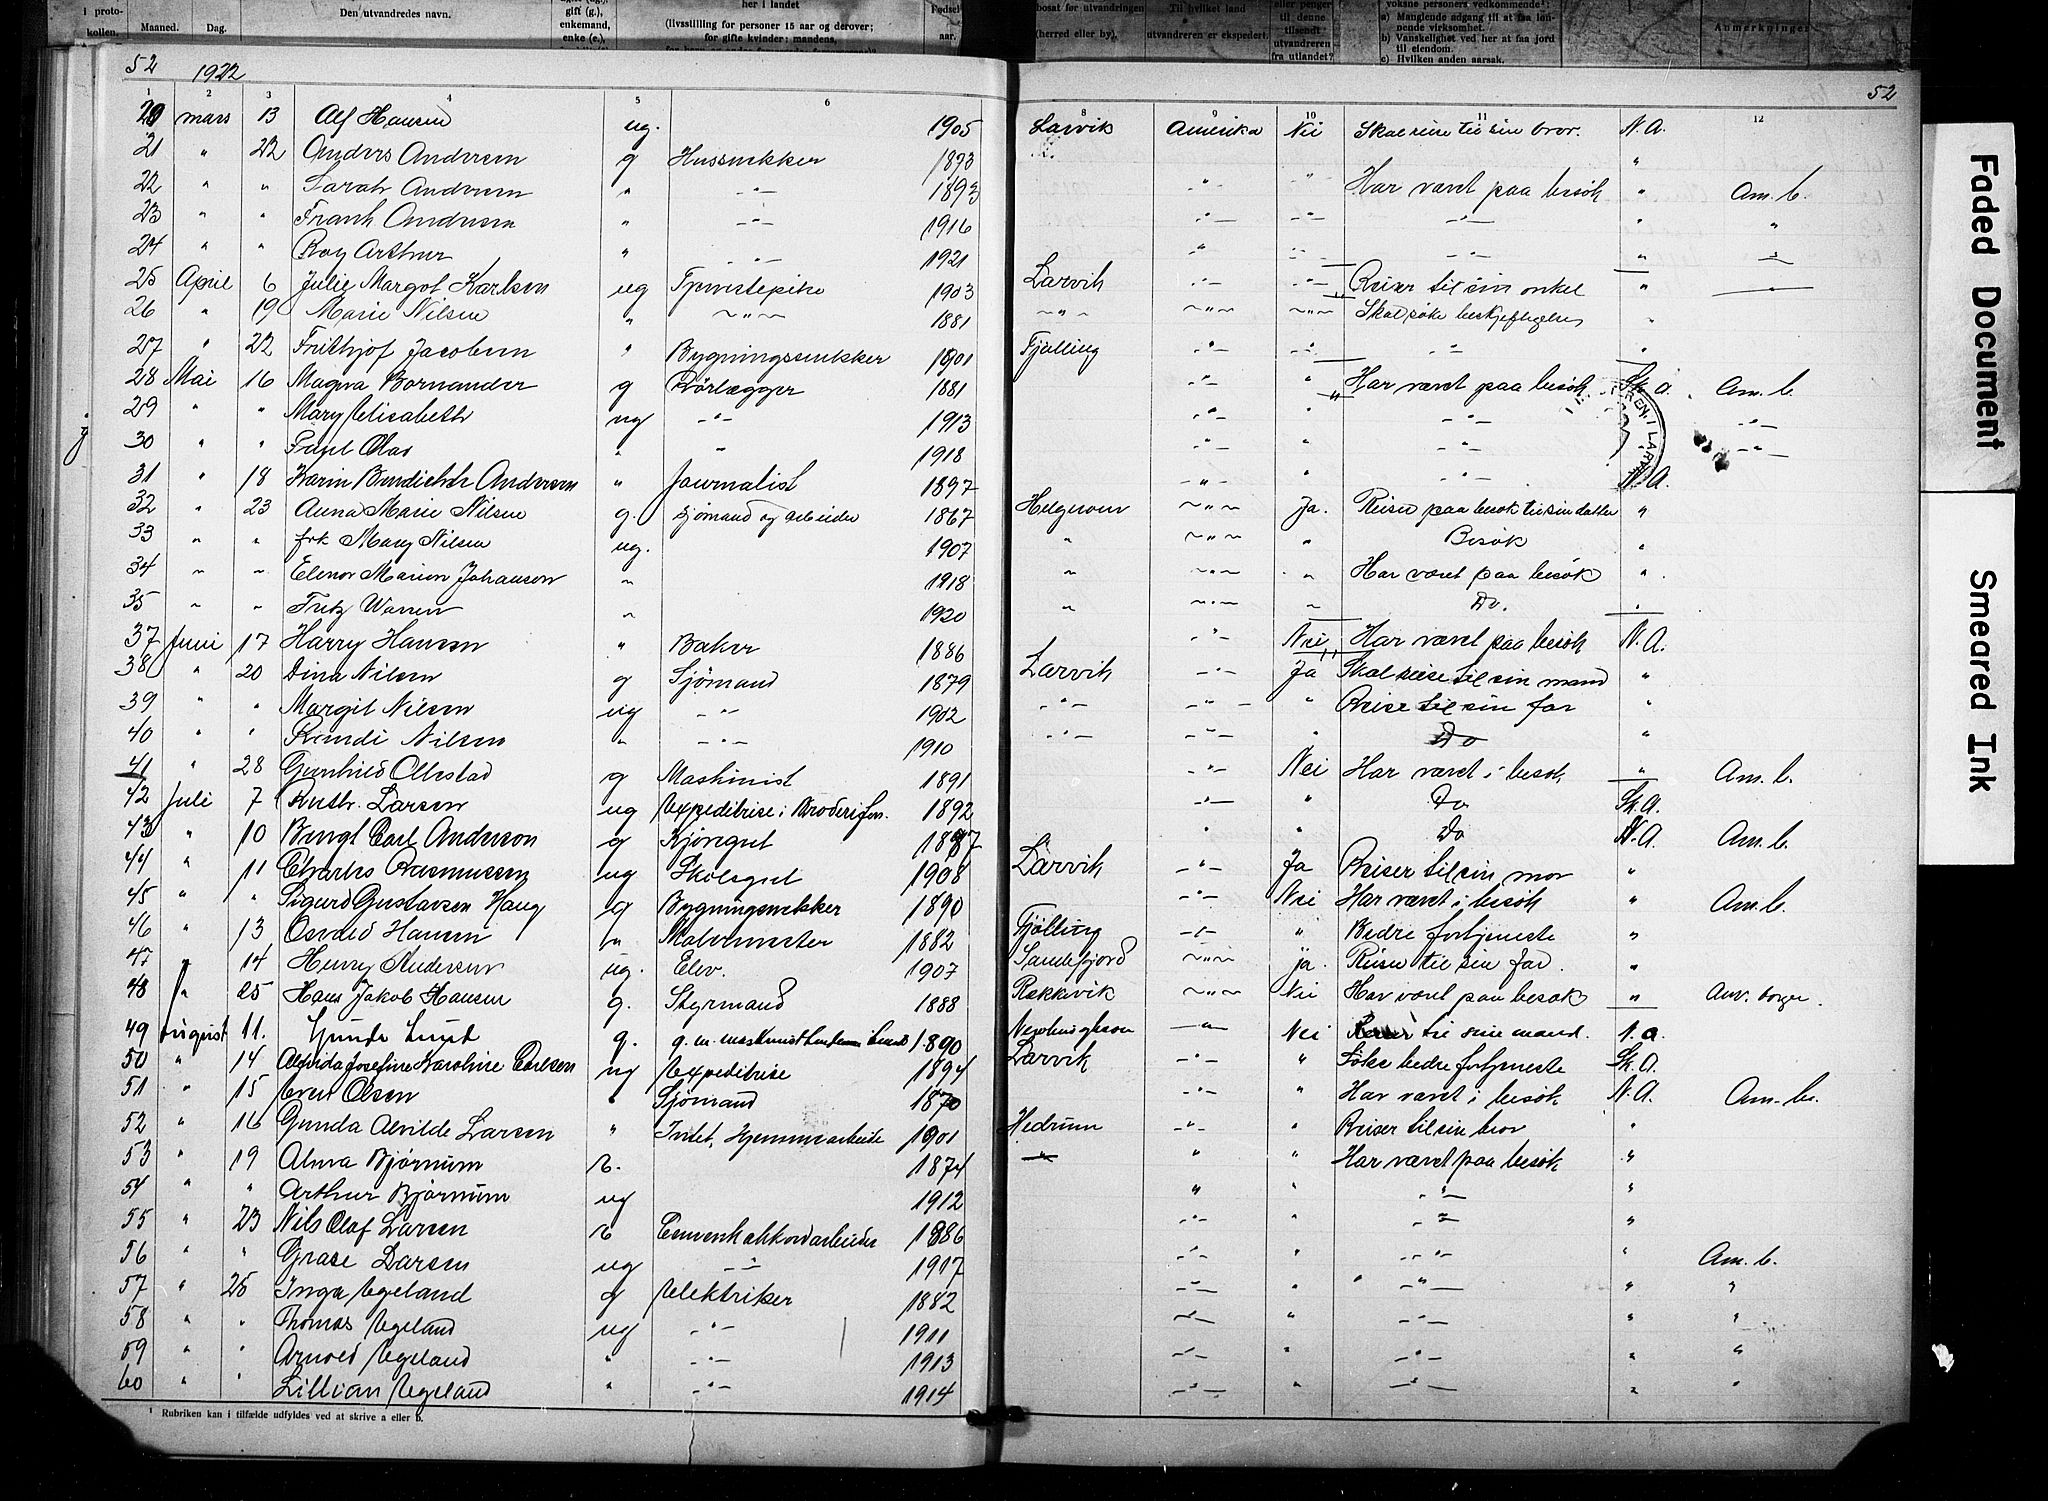 i proto-
kollen. Maaned. Dag. Den utvandredes navn. gift (g.), enkemand, enke (e.), her i landet (livsstilling for personer 15 aar og derover; for gifte kvinder: mandens, Fødsels- aar. bosat før utvandringen (herred eller by), Til hvilket land utvandreren er ekspedert. eller penger til denne tilsendt utvandreren fra utlandet? voksne personers vedkommende¹:
a) Manglende adgang til at faa løn-
nende virksomhet.
b) Vanskelighet ved her at faa jord
til eiendom.
c) Hvilken anden aarsak. Anmerkninger
52 1922 52
1 2 3 4 5 6 8 9 10 11 12
20 mars 13 Alf Hansen ug. 1905 Larvik Amerika Nei Skal reise til sin bror. N.A.
21 " 22 Anders Andersen g Hussnekker 1873 "
22 " " Sarah Andersen " -"- 1893 -"- " Har været paa besøk " Am. b.
23 " " Frank Andersen " -"- 1916 -"- -"- -"- " "
24 " " Roy Arthur " -"- 1921 " -"- -"- " "
25 April 6 Julie Margot Karlsen ug Tjenestepike 1903 Larvik -"- -"- Reiser til sin onkel "
26 " 19 Marie Nilsen " -"- 1881 -"- -"- -"- Skal søke beskjeftigelse "
27 " 22 Frithjof Jacobsen " Bygningssnekker 1901 Tjølling -"- -"- -"- "
28 Mai 16 Magna Bornander g Rørlægger 1881 -"- " Har været paa besøk Sk. A. Am. b.
29 " " Mary Elisabeth ug -"- 1913 -"- " -"- -"-
30 " " Paul Olas " " 1918 -"- " -"- -"-
31 " 18 Karin Bendichte Andersen " Journalist 1897 -"- " -"- N.A.
32 " 23 Anna Marie Nilsen g. sjømand og arbeider 1867 Helgeroen -"- Ja. Reiser paa besøk til sin datter "
33 " " frk Mary Nilsen ug. 1907 " -"- " Besøk "
34 " " Elenor Marion Johansen " 1918 " -"- " Har været paa besøk "
35 " " Fritz Warren " 1920 " -"- " Do. "
37 Juni 17 Harry Hansen " Baker 1886 -"- Nei Har været paa besøk N.A.
38 " 20 Dina Nilsen g Sjømand 1879 Larvik -"- Ja Skal reise til sin mand "
39 " " Margit Nilsen ug -"- 1902 -"- -"- " Reise til sin far "
40 " " Randi Nilsen " -"- 1910 -"- -"- Do "
41 " 28 Gunhild Ollestad g Maskinist 1891 -"- Nei Har været i besøk " Am. b.
42 Juli 7 Ruth. Larsen ug Expeditrise i Broderifor. 1892 -"- " Do Sk.A.
43 " 10 Bengt Carl Anderson g Kjøregut 1887 " " Do N.A. Am. b.
44 " 11 Charles Rasmussen ug Skolegut 1908 Larvik -"- Ja Reiser til sin mor "
45 " " Sigurd Gustavsen Haug g Bygningsnekker 1890 -"- Nei Har været i besøk " Am. b.
46 " 13 Osvald Hansen " Malermester 1882 Tjølling -"- " Bedre fortjeneste "
47 " 14 Henry Andersen ug. Elev. 1907 Sandefjord -"- ja. Reiser til sin far. "
48 " 25 Hans Jakob Hansen g. Styrmand 1888 Rekkevik -"- Nei Har været paa besøk " Am. borger.
49 August 11. Gunda Lund g. 1890 -"- Nei Reiser til sin mand. N.A.
50 " 14 Alfrida Josefine Karoline Carlsen ug Expeditrise 1894 Larvik -"- " Søke bedre fortjeneste Sk.A.
51 " 15 Even Olsen " Sjømand 1870 -"- " Har været i besøk N.A. Am. b.
52 " 16 Gunda Alvilde Larsen " Intet, Hjemmearbeide 1901 Hedrum -"- " Reiser til sin bror "
53 " 19 Alma Bjørnum e. 1874 " " " Har været paa besøk "
54 " " Arthur Bjørnum ug 1912 " " -"- "
55 " 23 Nils Olaf Larsen e Cementakkordarbeider 1886 -"- " -"- "
56 " " Grase Larsen ug -"- 1917 -"- " -"- " Am. b.
57 " 25 Inga Egeland g Elektriker 1882 -"- " -"- " "
58 " " Thomas Egeland ug -"- 1911 -"- " -"- " "
59 " " Arnold Egeland " -"- 1913 -"- " -"- " "
60 " " Lillian Egeland " -"- 1914 -"- " -"- " "
¹ Rubriken kan i tilfælde udfyldes ved at skrive a eller b.
REN I LARVIK
Faded Document
Smeared Ink